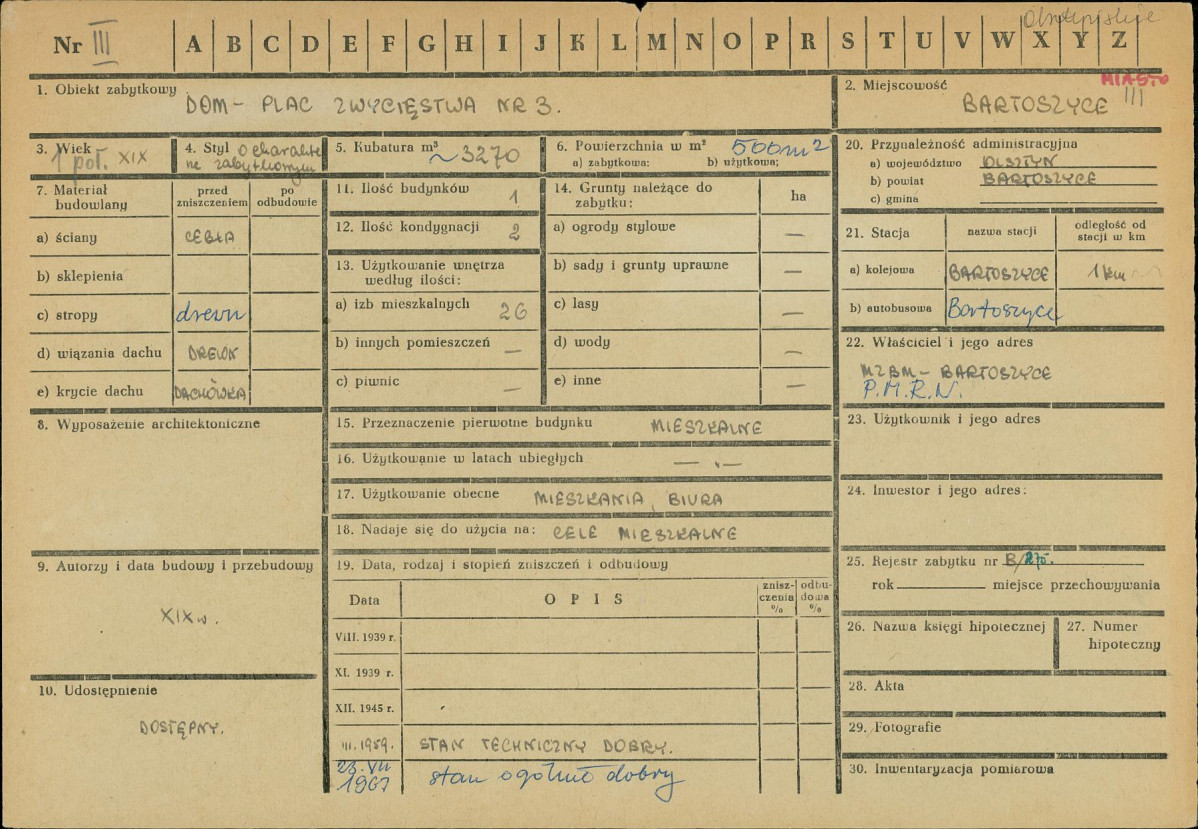 Nr III A B C D E F G H I J K L M N O P R S T U V W X Y Z
1. Obiekt zabytkowy
DOM – PLAC ZWYCIĘSTWA NR 3.
2. Miejscowość
MIASTO
BARTOSZYCE III
3. Wiek
1 poł. XIX
4. Styl O charakte
rze zabytkowym
5. Kubatura m³
~3270
6. Powierzchnia w m² 500m2
a) zabytkowa: b) użytkowa;
20. Przynależność administracyjna
a) województwo OLSZTYN
b) powiat BARTOSZYCE
c) gmina
7. Materiał
budowlany
przed
zniszczeniem
po
odbudowie
a) ściany CEGŁA
b) sklepienia
c) stropy drewn
d) wiązania dachu DREWN
e) krycie dachu DACHÓWKA
11. Ilość budynków 1
12. Ilość kondygnacji 2
13. Użytkowanie wnętrza
według ilości:
a) izb mieszkalnych 26
b) innych pomieszczeń —
c) piwnic —
14. Grunty należące do
zabytku:
ha
a) ogrody stylowe —
b) sady i grunty uprawne —
c) lasy —
d) wody —
e) inne —
21. Stacja
nazwa stacji
odległość od
stacji w km
a) kolejowa BARTOSZYCE 1 km
b) autobusowa Bartoszyce
22. Właściciel i jego adres
MZBM – BARTOSZYCE
P.M.R.N.
8. Wyposażenie architektoniczne
15. Przeznaczenie pierwotne budynku MIESZKALNE
16. Użytkowanie w latach ubiegłych — „ —
17. Użytkowanie obecne MIESZKANIA, BIURA
18. Nadaje się do użycia na: CELE MIESZKALNE
23. Użytkownik i jego adres
24. Inwestor i jego adres:
9. Autorzy i data budowy i przebudowy
XIX w.
19. Data, rodzaj i stopień zniszczeń i odbudowy
Data
OPIS
znisz-
czenia
%
odbu-
dowa
%
VIII. 1939 r.
XI. 1939 r.
XII. 1945 r.
III. 1959. STAN TECHNICZNY DOBRY.
23. VII
1967 stan ogólnie dobry
25. Rejestr zabytku nr B/275.
rok miejsce przechowywania
26. Nazwa księgi hipotecznej
27. Numer
hipoteczny
10. Udostępnienie
DOSTĘPNY.
28. Akta
29. Fotografie
30. Inwentaryzacja pomiarowa